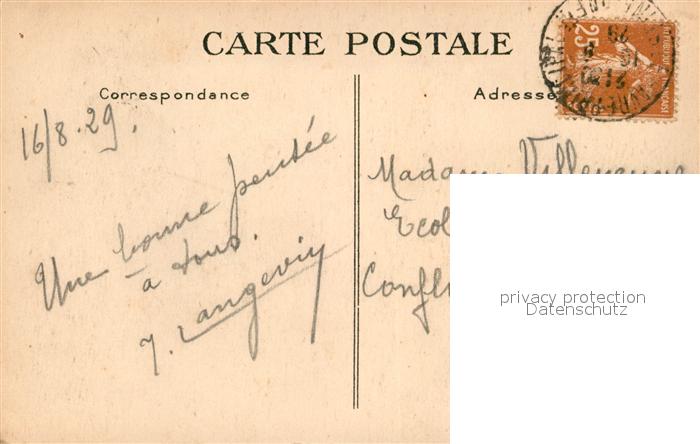 CARTE POSTALE
Correspondance
Adresse
16/8.29.
Une bonne pensée
à tous.
J. Langevin
Madame Villeneuve
Ecol
Confl
25
privacy protection
Datenschutz